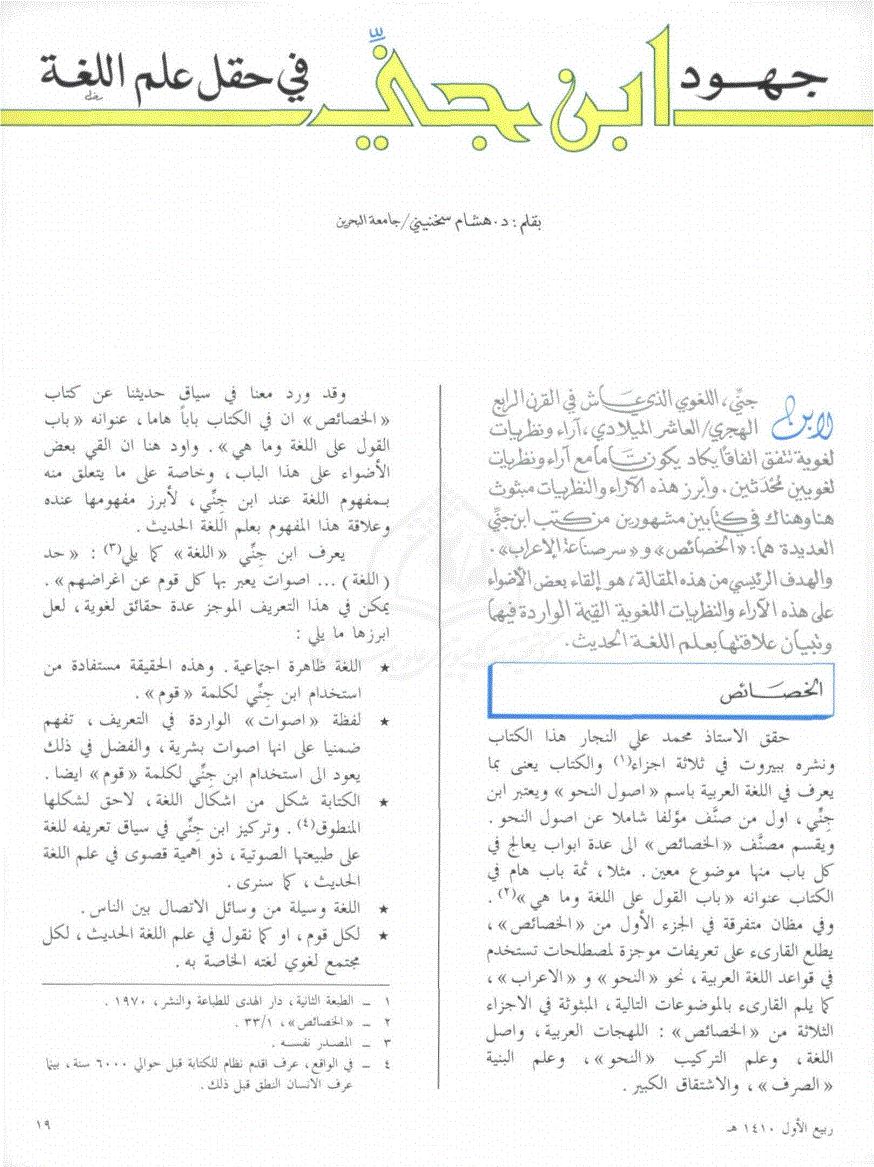 جهود
ابن جنِّي
في حقل علم اللغة
بقلم : د. هشام سخنيني/جامعة البحرين
لابن جنِّي، اللغوي الذي عاش في القرن الرابع
الهجري/العاشر الميلادي، آراء ونظريات
لغوية تتفق اتفاقا يكاد يكون تاما مع آراء ونظريات
لغويين مُحْدَثين. وأبرز هذه الآراء والنظريات مبثوث
هنا وهناك في كتابين مشهورين من كتب ابن جنِّي
العديدة هما: «الخصائص» و «سر صناعة الإعراب».
والهدف الرئيسي من هذه المقالة، هو إلقاء بعض الأضواء
على هذه الآراء والنظريات اللغوية القيّمة الواردة فيهما
وتبيان علاقتها بعلم اللغة الحديث.
الخصائص
حقق الاستاذ محمد علي النجار هذا الكتاب
ونشره ببيروت في ثلاثة اجزاء(١) والكتاب يعنى بما
يعرف في اللغة العربية باسم «اصول النحو» ويعتبر ابن
جِنِّي، اول من صنَّف مؤلفا شاملا عن اصول النحو .
ويقسم مصنَّف «الخصائص» الى عدة ابواب يعالج في
كل باب منها موضوع معين. مثلا، ثمة باب هام في
الكتاب عنوانه «باب القول على اللغة وما هي»(٢) .
وفي مظان متفرقة في الجزء الأول من «الخصائص»،
يطلع القارىء على تعريفات موجزة لمصطلحات تستخدم
في قواعد اللغة العربية، نحو «النحو» و «الاعراب»،
كما يلم القارىء بالموضوعات التالية، المبثوثة في الاجزاء
الثلاثة من «الخصائص» : اللهجات العربية، واصل
اللغة، وعلم التركيب «النحو»، وعلم البنية
«الصرف»، والاشتقاق الكبير .
وقد ورد معنا في سياق حديثنا عن كتاب
«الخصائص» ان في الكتاب باباً هاما، عنوانه «باب
القول على اللغة وما هي». واود هنا ان القي بعض
الأضواء على هذا الباب، وخاصة على ما يتعلق منه
بمفهوم اللغة عند ابن جِنِّي، لأبرز مفهومها عنده
وعلاقة هذا المفهوم بعلم اللغة الحديث .
يعرف ابن جِنِّي «اللغة» كما يلي(٣) : «حد
(اللغة) ... اصوات يعبر بها كل قوم عن اغراضهم» .
يمكن في هذا التعريف الموجز عدة حقائق لغوية، لعل
ابرزها ما يلي :
★ اللغة ظاهرة اجتماعية. وهذه الحقيقة مستفادة من
استخدام ابن جِنِّي لكلمة «قوم» .
★ لفظة «اصوات» الواردة في التعريف، تفهم
ضمنيا على انها اصوات بشرية، والفضل في ذلك
يعود الى استخدام ابن جِنِّي لكلمة «قوم» ايضا .
★ الكتابة شكل من اشكال اللغة، لاحق لشكلها
المنطوق(٤) . وتركيز ابن جِنِّي في سياق تعريفه للغة
على طبيعتها الصوتية، ذو اهمية قصوى في علم اللغة
الحديث، كما سنرى .
★ اللغة وسيلة من وسائل الاتصال بين الناس .
★ لكل قوم، او كما نقول في علم اللغة الحديث، لكل
مجتمع لغوي لغته الخاصة به .
١ ــ الطبعة الثانية، دار الهدى للطباعة والنشر، ١٩٧٠ .
٢ ــ «الخصائص»، ٣٣/١ .
٣ ــ المصدر نفسه .
٤ ــ في الواقع، عرف اقدم نظام للكتابة قبل حوالي ٦٠٠٠ سنة، بينما
عرف الانسان النطق قبل ذلك .
ربيع الأول ١٤١٠ هـ
١٩